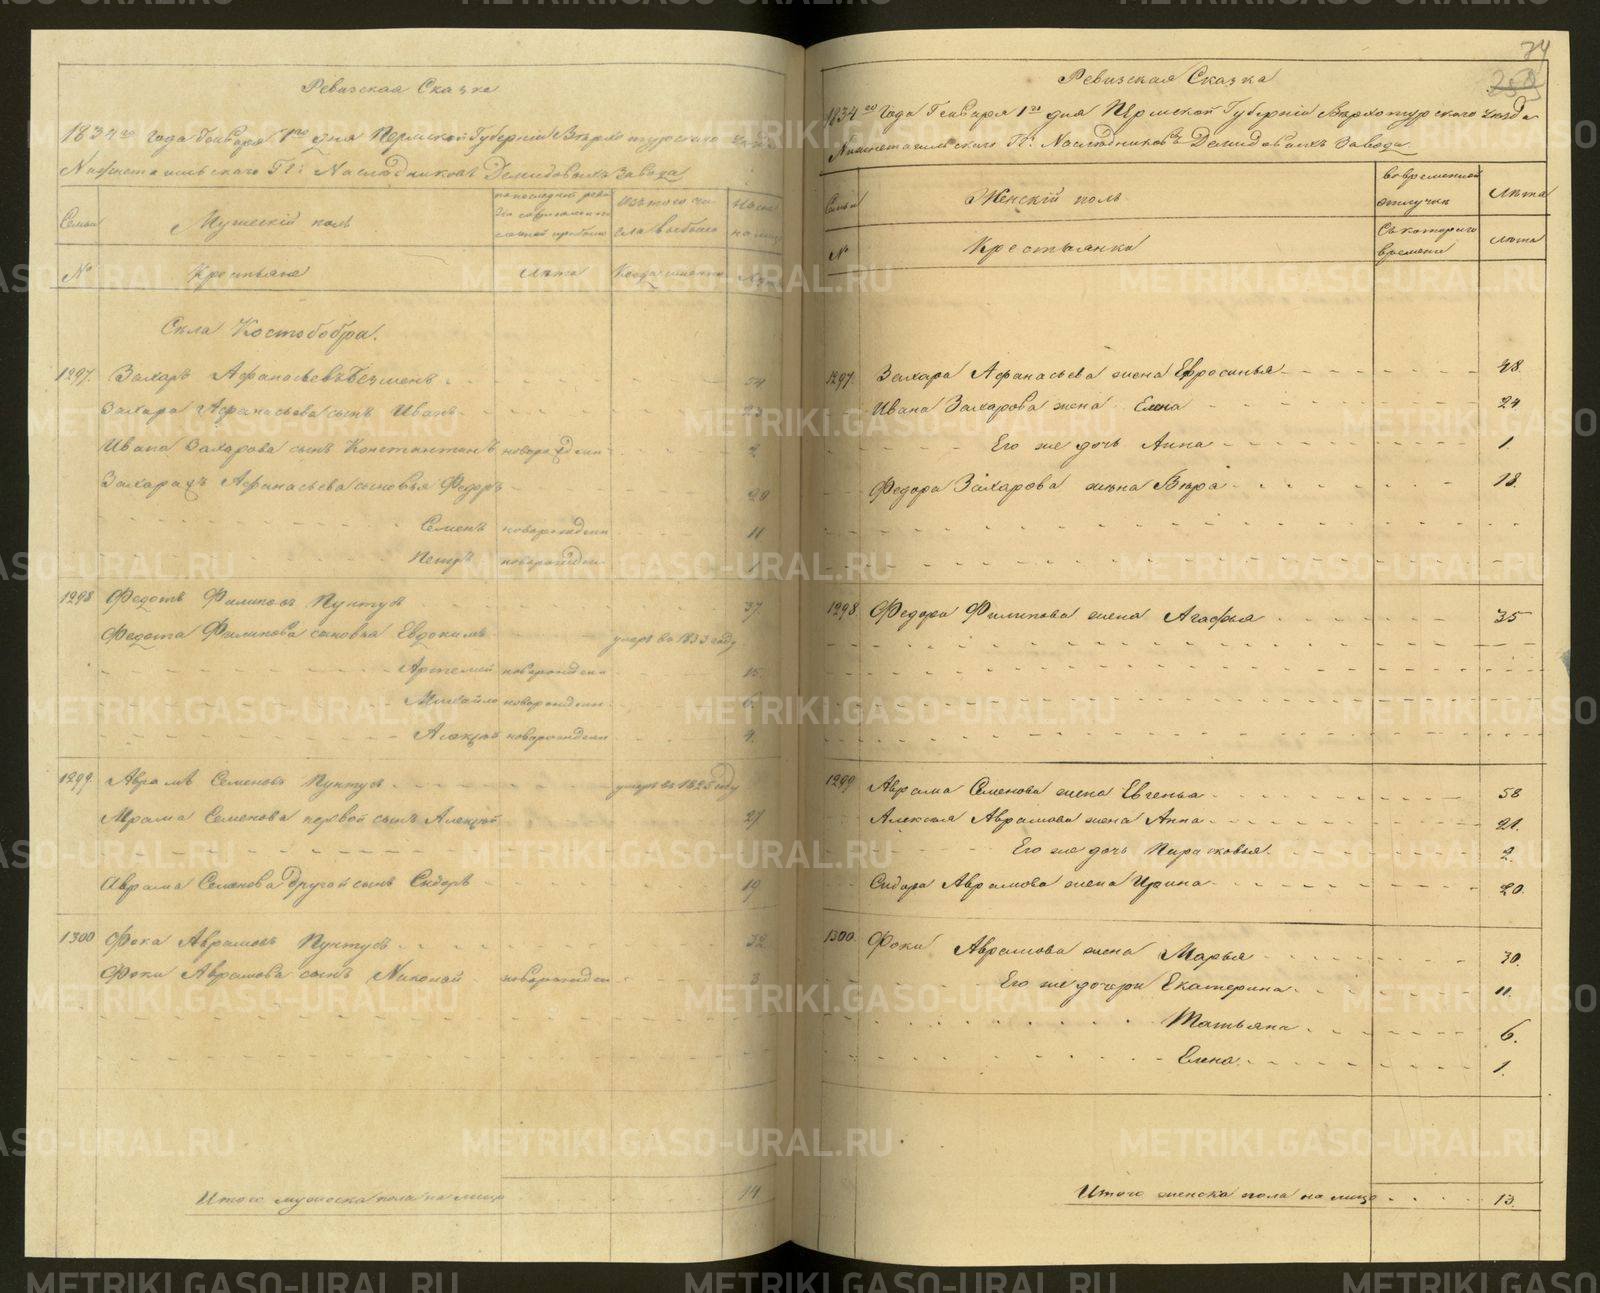 Ревизская Сказка
1834го года Генваря 1го дня Пермской Губернии Верхотурского уезда
Нижнетагильского Гг: Наследников Демидовыхъ Завода
Семьи
Мужескій полъ
Изъ того числа выбыло
№
Крестьяне
Лѣта
Когда именно
Села Костобобра.
1297. Захаръ Афанасьевъ Безменъ 54
Захара Афанасьева сынъ Иванъ 23
Ивана Захарова сынъ Константинъ новорожден 2
Захара Афанасьева сыновья Федоръ 20
Семенъ новорожден 11
Петръ новорожден 1
1298 Федотъ Филиповъ Пунтусъ 37.
Федота Филипова сыновья Евдокимъ умеръ в 1833 году
Артемий новорожден 15
Михайло новорожден 6
Алексѣй новорожден 4.
1299. Аврамъ Семеновъ Пунтусъ умеръ въ 1825 году
Аврама Семенова первой сынъ Алексѣй 27
Аврама Семенова другой сынъ Сидоръ 19
1300 Фока Аврамовъ Пунтусъ 32
Фоки Аврамова сынъ Николай новорожден 3
Итого мужеска пола на лицо 14
74
Ревизская Сказка
1834го года Генваря 1го дня Пермской Губернии Верхотурского уезда
Нижнетагильского Гг: Наследниковъ Демидовыхъ Завода.
Семьи
Женскій полъ
во временной отлучке
Лѣта
№
Крестьянки
Съ которого времени
лѣта
1297. Захара Афанасьева жена Ефросинья 48.
Ивана Захарова жена Елена 24
Его же дочь Анна 1.
Федора Захарова жена Вѣра 18.
1298. Федора Филипова жена Агафья 35
1299 Аврама Семенова жена Евгенья 58
Алексея Аврамова жена Анна 21.
Его же дочь Парасковья. 2.
Сидора Аврамова жена Ирина 20.
1300. Фоки Аврамова жена Марья 30.
Его же дочери Екатерина 11.
Татьяна 6.
Елена 1.
Итого женска пола на лицо 13.
METRIKI.GASO-URAL.RU